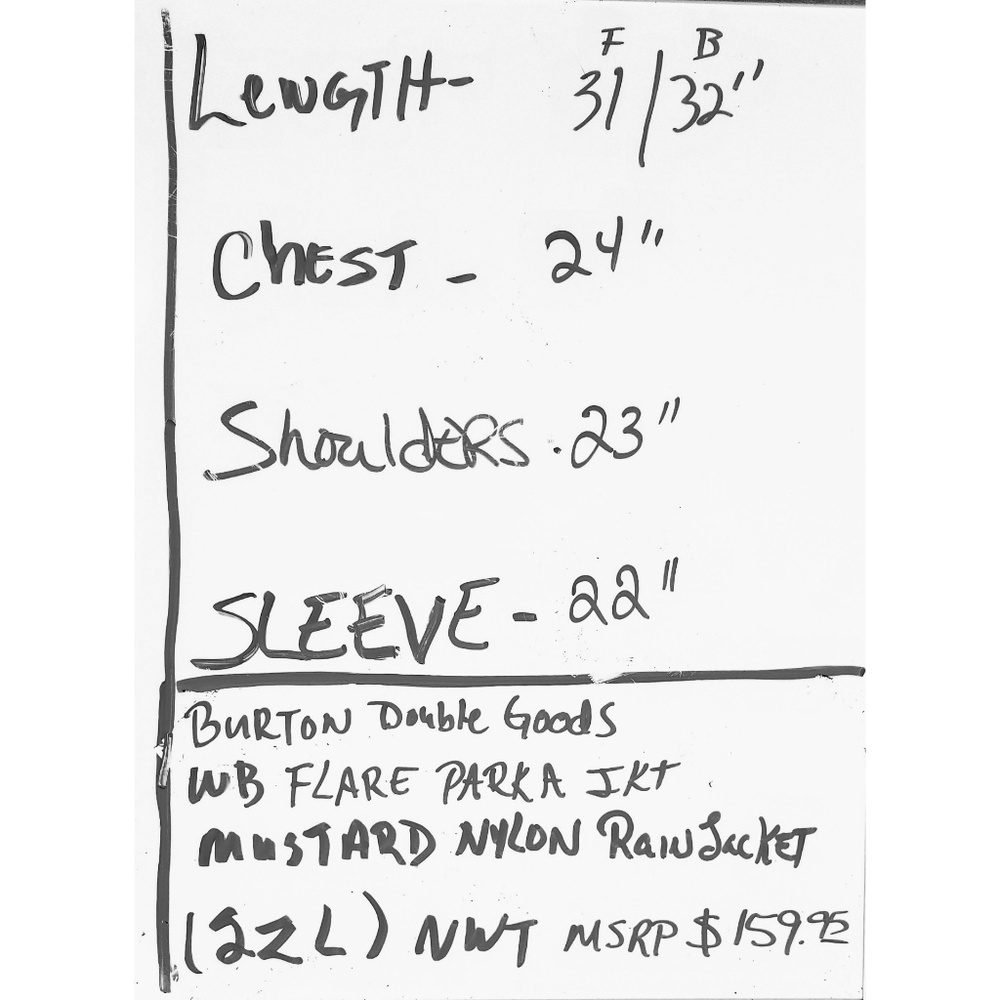 F B
LENGTH- 31/32"
CHEST - 24"
ShouldERS . 23"
SLEEVE - 22"
BURTON Double Goods
WB FLARE PARKA JKT
MUSTARD NYLON RAIN JACKET
(SZ L) NWT MSRP $159.95